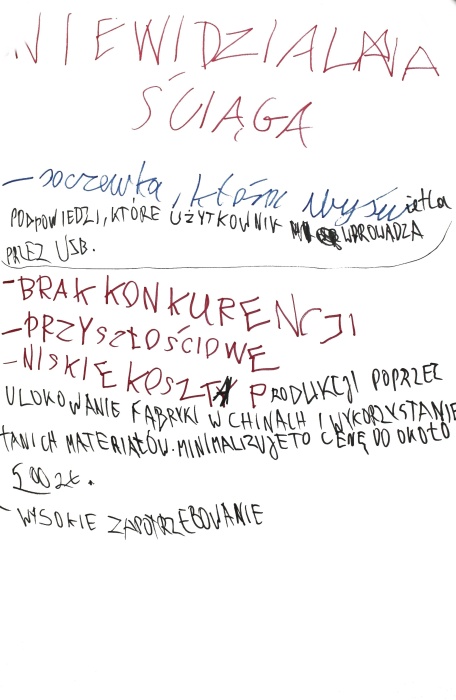 NIEWIDZIALNA
ŚCIĄGA
- soczewka, która wyświetla
PODPOWIEDZI, KTÓRE UŻYTKOWNIK WPROWADZA
PRZEZ USB.
- BRAK KONKURENCJI
- PRZYSZŁOŚCIOWE
- NISKIE KOSZTY PRODUKCJI POPRZEZ
ULOKOWANIE FABRYKI W CHINACH I WYKORZYSTANIE
TANICH MATERIAŁÓW. MINIMALIZUJE TO CENĘ DO OKOŁO
500 zł.
- WYSOKIE ZAPOTRZEBOWANIE